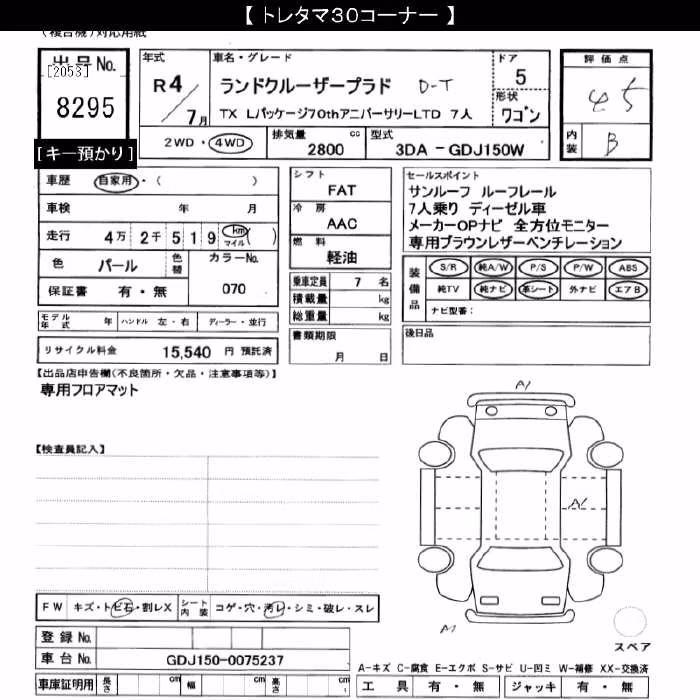 【 トレタマ30コーナー 】
(複合機)対応用紙
出品No.
[2053]
8295
[キー預かり]
年式
R4/7月
車名・グレード
ランドクルーザープラド D-T
TX Lパッケージ70thアニバーサリーLTD 7人
ドア
5
形状
ワゴン
2WD・4WD
排気量 cc
2800
型式
3DA－GDJ150W
評価点
4.5
内装
B
車歴 自家用・( )
車検 年 月
走行 4万 2千 5 1 9 km マイル ( )
色 パール 色替 カラーNo.
保証書 有・無 070
モデル年式 年 ハンドル 左・右 ディーラー・並行
リサイクル料金 15,540 円 預託済
シフト
FAT
冷房
AAC
燃料
軽油
乗車定員 7 名
積載量 kg
総重量 kg
書類期限
月 日
セールスポイント
サンルーフ ルーフレール
7人乗り ディーゼル車
メーカーOPナビ 全方位モニター
専用ブラウンレザーベンチレーション
装備品
S/R 純A/W P/S P/W ABS
純TV 純ナビ 革シート 外ナビ エアB
ナビ型番：
後日品
【出品店申告欄(不良箇所・欠品・注意事項等)】
専用フロアマット
【検査員記入】
A1
A1
A1
FW キズ・トビ石・割レX シート内装 コゲ・穴・汚レ・シミ・破レ・スレ
登録No.
車台No. GDJ150-0075237
車庫証明用 長さ cm 幅 cm 高さ cm
スペア
A-キズ C-腐食 E-エクボ S-サビ U-凹ミ W-補修 XX-交換済
工具 有・無 ジャッキ 有・無